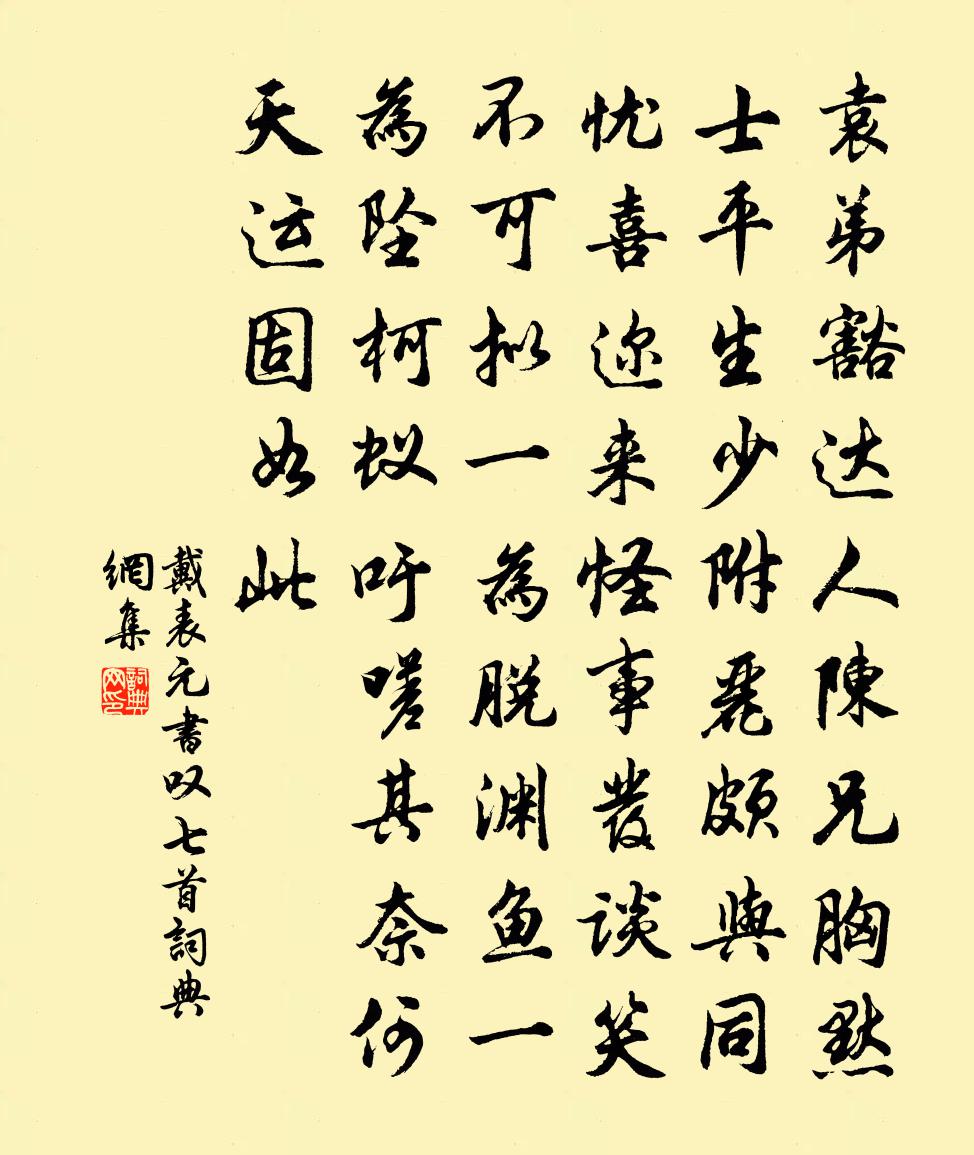 袁弟豁达人陳兄胸黙
士平生少附麗頗與同
忧喜迩来怪事發谈笑
不可拟一為脱渊鱼一
為坠柯蚁吁嗟其奈何
天运固如此
戴表元書叹七首詞典
網集
詞典网印